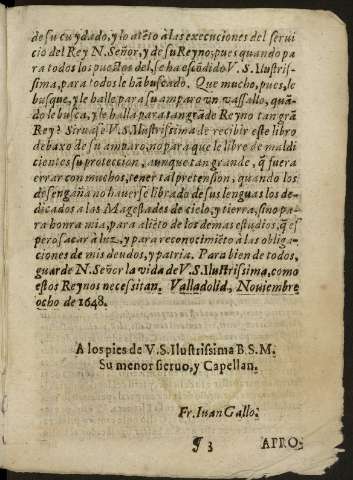 de su cuydado, y lo atẽto à las execuciones del serui
cio del Rey N. Señor, y de su Reyno; pues quando pa
ra todos los puestos del, se ha escõdido V. S. Ilustris-
sima, para todos le hã buscado. Que mucho, pues, le
busque, y le halle para su amparo vn vassallo, quã-
do le busca, y le halla para tan grãde Reyno tan grã
Rey? Siruase V. S. Ilustrissima de recibir este libro
debaxo de su amparo, no para que le libre de maldi
cientes su proteccion, aunque tan grande, q̃ fuera
errar con muchos, tener tal pretension, quando los
desengaña no hauerse librado de sus lenguas los de-
dicados a las Magestades de cielo, y tierra, sino pa-
ra honra mia, para aliẽto de los demas estudios, q̃ es
pero sacar à luz, y para reconocimiẽto à las obliga-
ciones de mis deudos, y patria. Para bien de todos,
guarde N. Señor la vida de V. S. Ilustrissima, como
estos Reynos necessitan. Valladolid, Nouiembre
ocho de 1648.
A los pies de V. S. Ilustrissima B. S. M.
Su menor sieruo, y Capellan.
Fr. Iuan Gallo.
¶ 3 APRO-